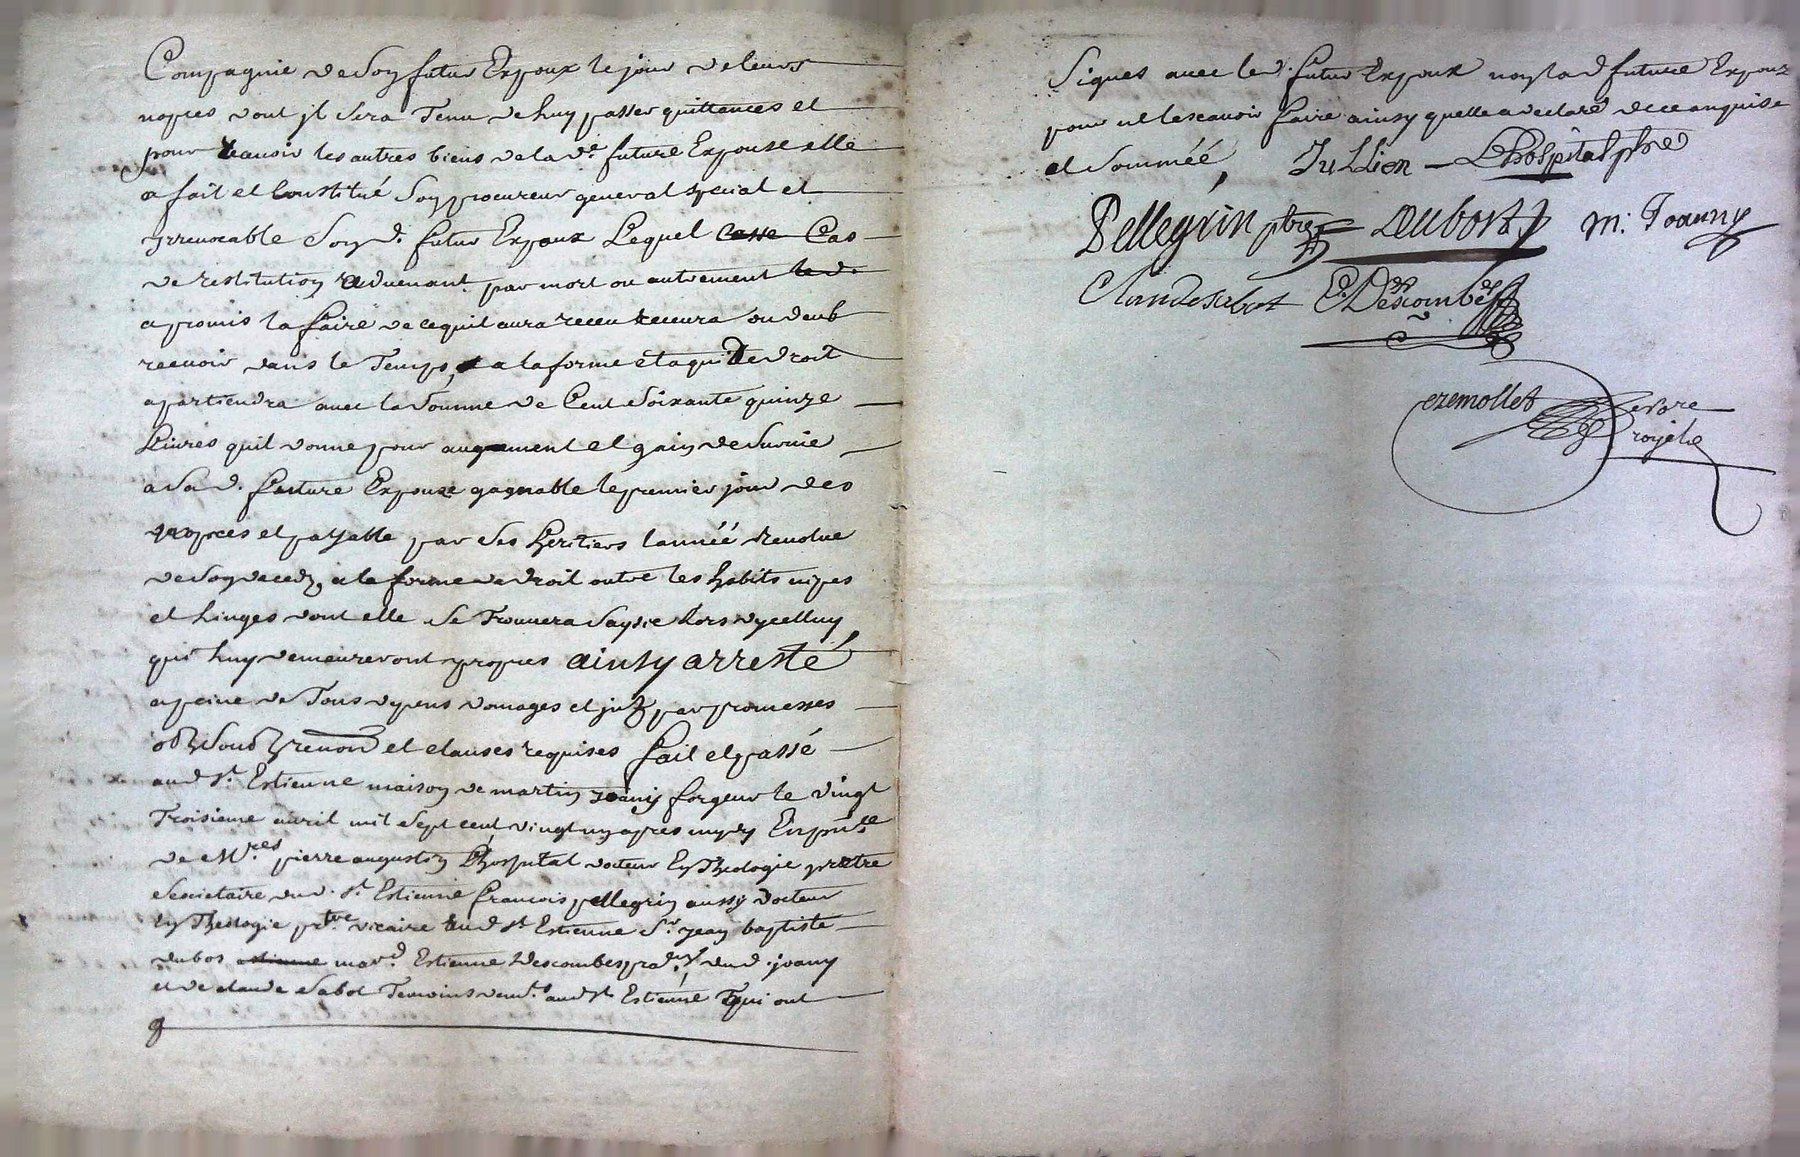 Compagnie de Son futur Expoux le jour de leurs
nopces dont jl Sera Tenu de luy passer quittances et
pour ravoir les autres biens de lad.e future Expouse elle
a fait et Constitué Son procureur general special et
yrrevocable Son d. futur Expoux Lequel Cas
de restitution advenant par mort ou autrement
a promis la faire de ce quil aura receu recevra ou deub
recevoir dans le Temps, a la forme et a qui de droit
apartiendra avec la Somme de Cent Soixante quinze
Livres quil donne pour augment et gain de Survie
a Sa d. future Expouse gagnable le premier jour des
nopces et payable par Ses heritiers lannéé revolue
de Son decedz a la forme de droit outre les habits nipes
et linges dont elle Se Trouvera Saysie Lors dycelluy
qui luy demeureront propres ainsy arresté
a peine de Tous depens domages et par promesses
renon et clauses requises fait et passé
aud St. Estienne maison de martin joany forgeur le vingt
Troisieme avril mil Sept cent vingt un apres mydy En pn.ce
de M.res pierre augustin Lhospital docteur En Theologie pretre
Secretaire dud. St Estienne francois pellegrin aussy docteur
En Theologie ptre vicaire dud St Estienne Sr. jean baptiste
dubos mar.d Estienne Descombes dud. joany
et de claude Sabot Temoins dem.t aud St Estienne qui ont
Signes avec led. futur Expoux non lad future Expouze
pour ne le scavoir faire ainsy quelle a declaré de ce enquise
et Somméé, Jullien Lhospital ptre
Pellegrin ptre Dubost M: Joanny
Claude Sabot E. Descombes